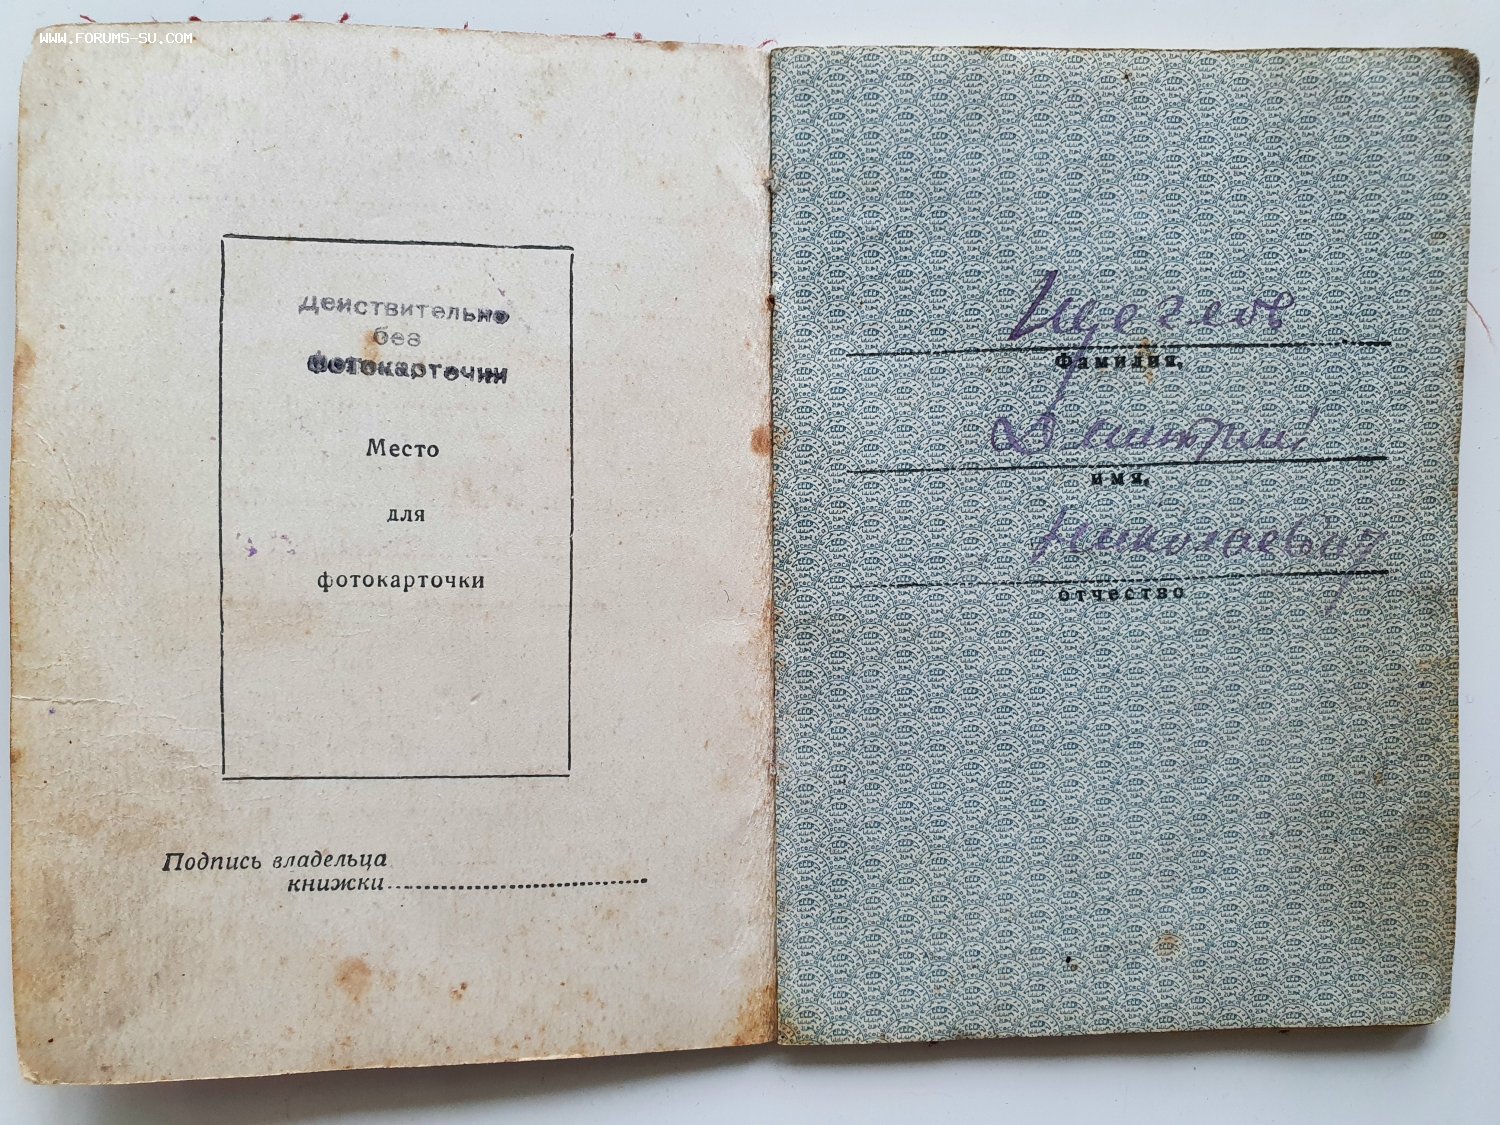 WWW.FORUMS-SU.COM
Действительно
без
фотокарточки
Место
для
фотокарточки
Подпись владельца
книжки
Щеглов
Фамилия,
Дмитрий
имя,
Николаевич
отчество